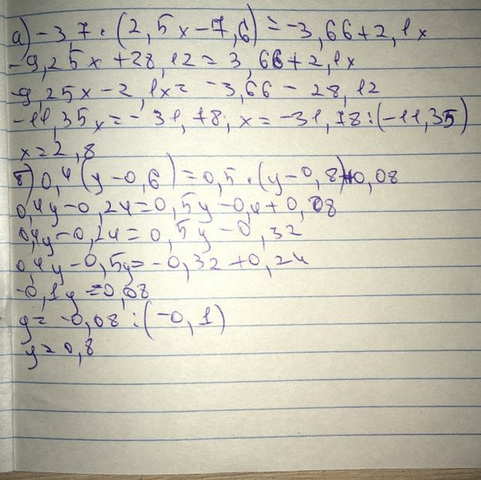 а) -3,7 · (2,5x-7,6) = -3,66+2,1x
-9,25x+28,12=3,66+2,1x
-9,25x-2,1x=-3,66-28,12
-11,35x=-31,78; x=-31,78:(-11,35)
x=2,8
б) 0,4(y-0,6)=0,5·(y-0,8)+0,08
0,4y-0,24=0,5y-0,4+0,08
0,4y-0,24=0,5y-0,32
0,4y-0,5y=-0,32+0,24
-0,1y=0,08
y=-0,08:(-0,1)
y=0,8